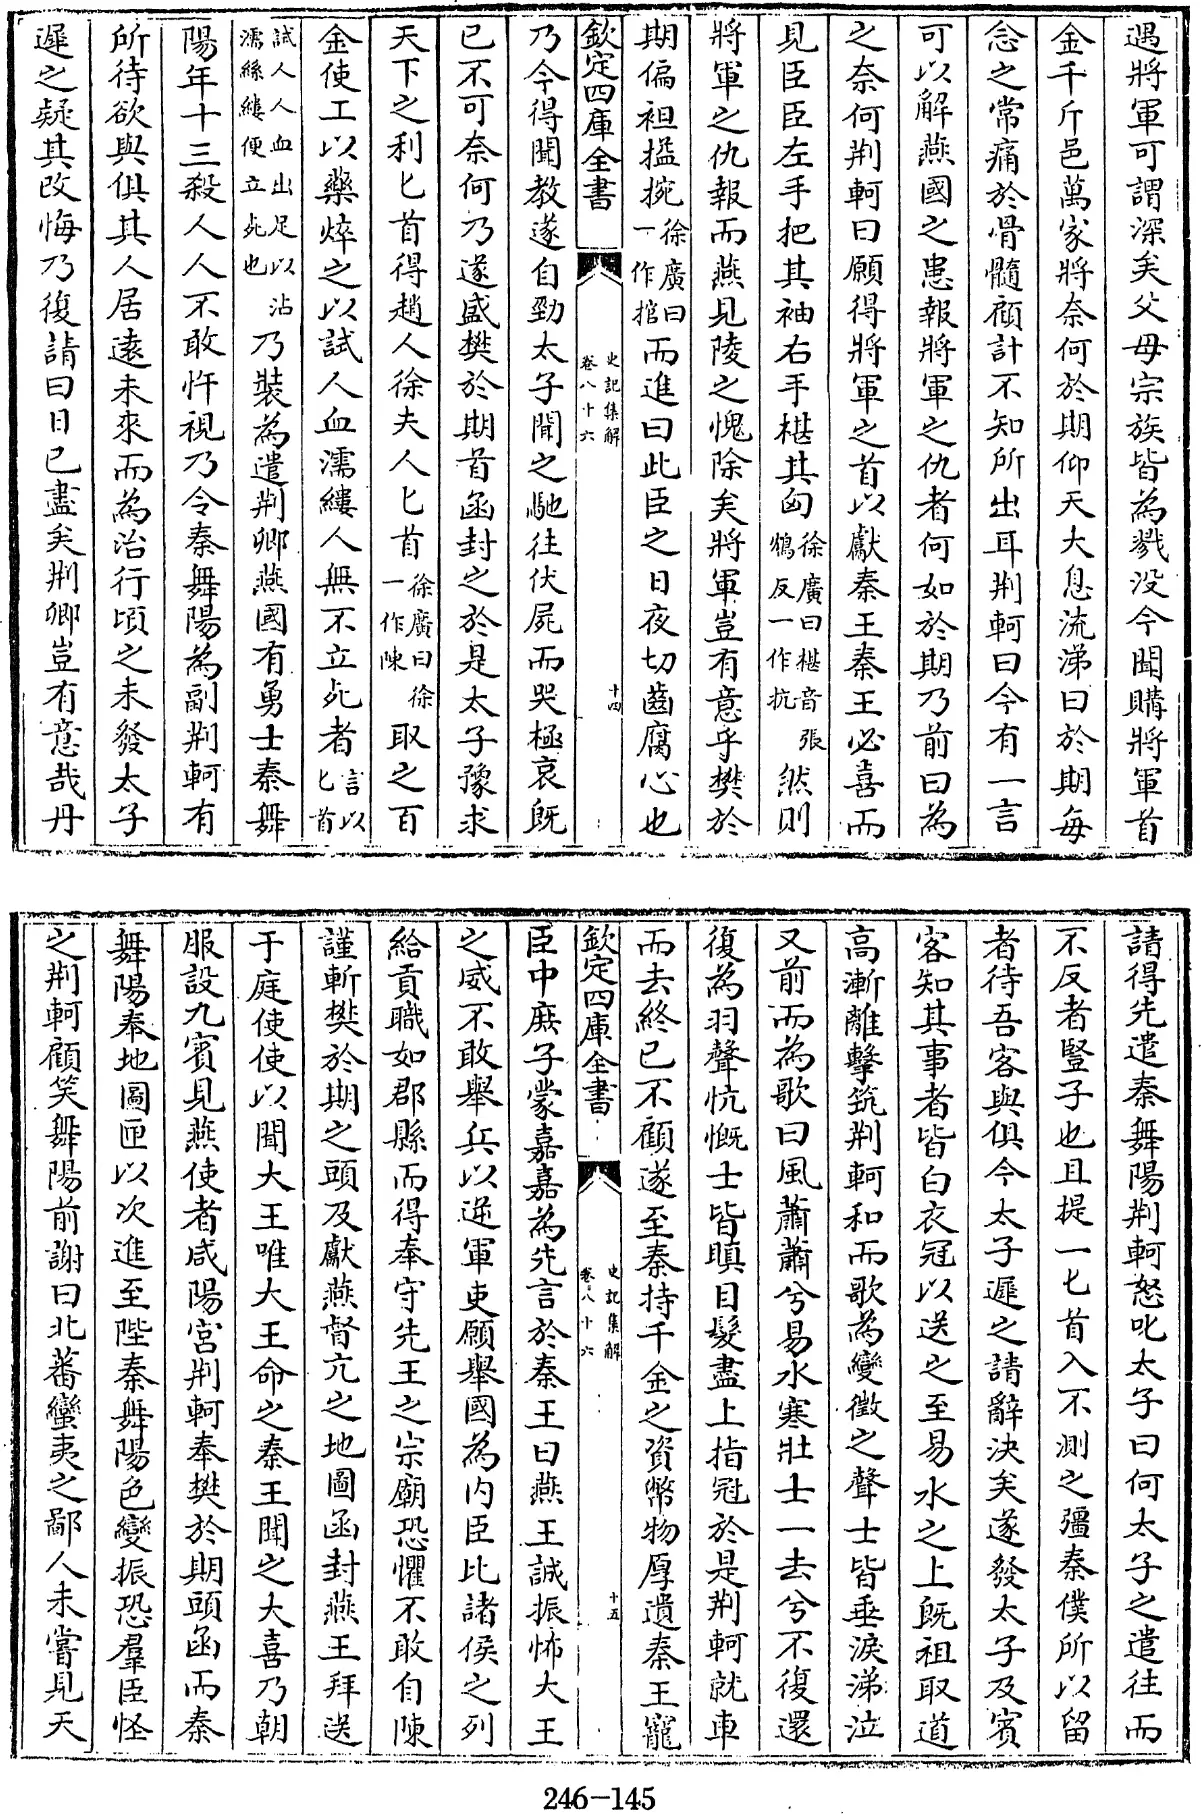 遇將軍可謂深矣父母宗族皆為戮没今聞購將軍首
金千斤邑萬家將奈何於期仰天大息流涕曰於期每
念之常痛於骨髓顧計不知所出耳荆軻曰今有一言
可以解燕國之患報將軍之仇者何如於期乃前曰為
之奈何荆軻曰願得將軍之首以獻秦王秦王必喜而
見臣臣左手把其袖右手椹其匈徐廣曰椹音張鴆反一作抗然則
將軍之仇報而燕見陵之愧除矣將軍豈有意乎樊於
期偏袒搤捥徐廣曰一作捾而進曰此臣之日夜切齒腐心也
欽定四庫全書
史記集解
卷八十六
十四
乃今得聞教遂自剄太子聞之馳往伏屍而哭極哀旣
已不可奈何乃遂盛樊於期首函封之於是太子豫求
天下之利匕首得趙人徐夫人匕首徐廣曰徐一作陳取之百
金使工以藥焠之以試人血濡縷人無不立死者言以匕首
試人人血出足以沾濡絲縷便立死也乃裝為遣荆卿燕國有勇士秦舞
陽年十三殺人人不敢忤視乃令秦舞陽為副荆軻有
所待欲與俱其人居遠未來而為治行頃之未發太子
遲之疑其改悔乃復請曰日已盡矣荆卿豈有意哉丹
請得先遣秦舞陽荆軻怒叱太子曰何太子之遣往而
不反者豎子也且提一匕首入不測之彊秦僕所以留
者待吾客與俱今太子遲之請辭決矣遂發太子及賓
客知其事者皆白衣冠以送之至易水之上旣祖取道
高漸離擊筑荆軻和而歌為變徵之聲士皆垂淚涕泣
又前而為歌曰風蕭蕭兮易水寒壯士一去兮不復還
復為羽聲忼慨士皆瞋目髮盡上指冠於是荆軻就車
而去終已不顧遂至秦持千金之資幣物厚遺秦王寵
欽定四庫全書
史記集解
卷八十六
十五
臣中庶子蒙嘉嘉為先言於秦王曰燕王誠振怖大王
之威不敢舉兵以逆軍吏願舉國為内臣比諸侯之列
給貢職如郡縣而得奉守先王之宗廟恐懼不敢自陳
謹斬樊於期之頭及獻燕督亢之地圖函封燕王拜送
于庭使使以聞大王唯大王命之秦王聞之大喜乃朝
服設九賓見燕使者咸陽宮荆軻奉樊於期頭函而秦
舞陽奉地圖匣以次進至陛秦舞陽色變振恐羣臣怪
之荆軻顧笑舞陽前謝曰北蕃蠻夷之鄙人未嘗見天
246-145